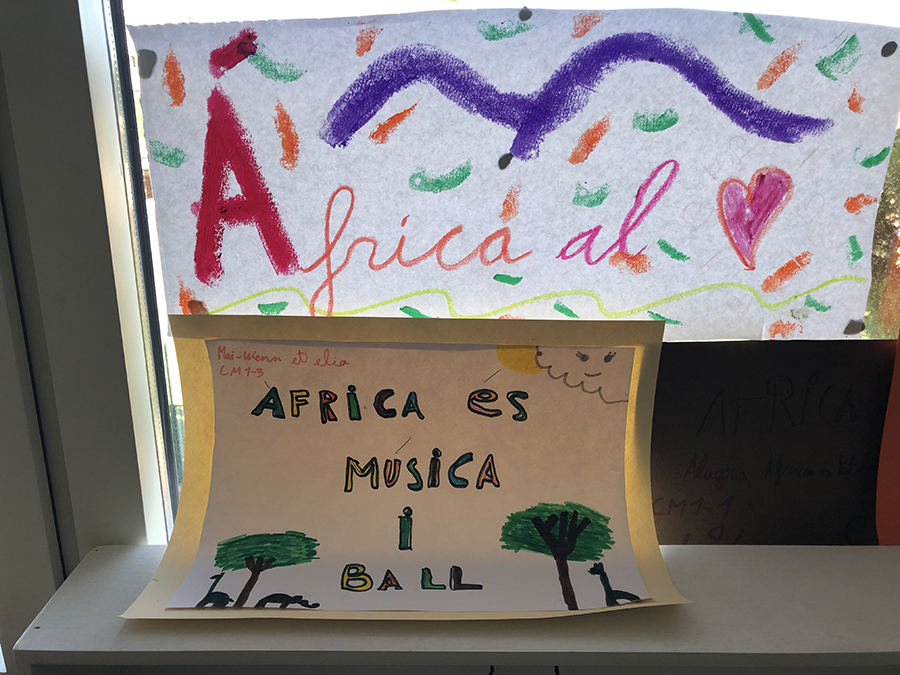 África al
Mai-Wenn et elia
CM1-3
ÀFRICA éS
MÚSICA
i
BALL
AFRICA
CM1-1